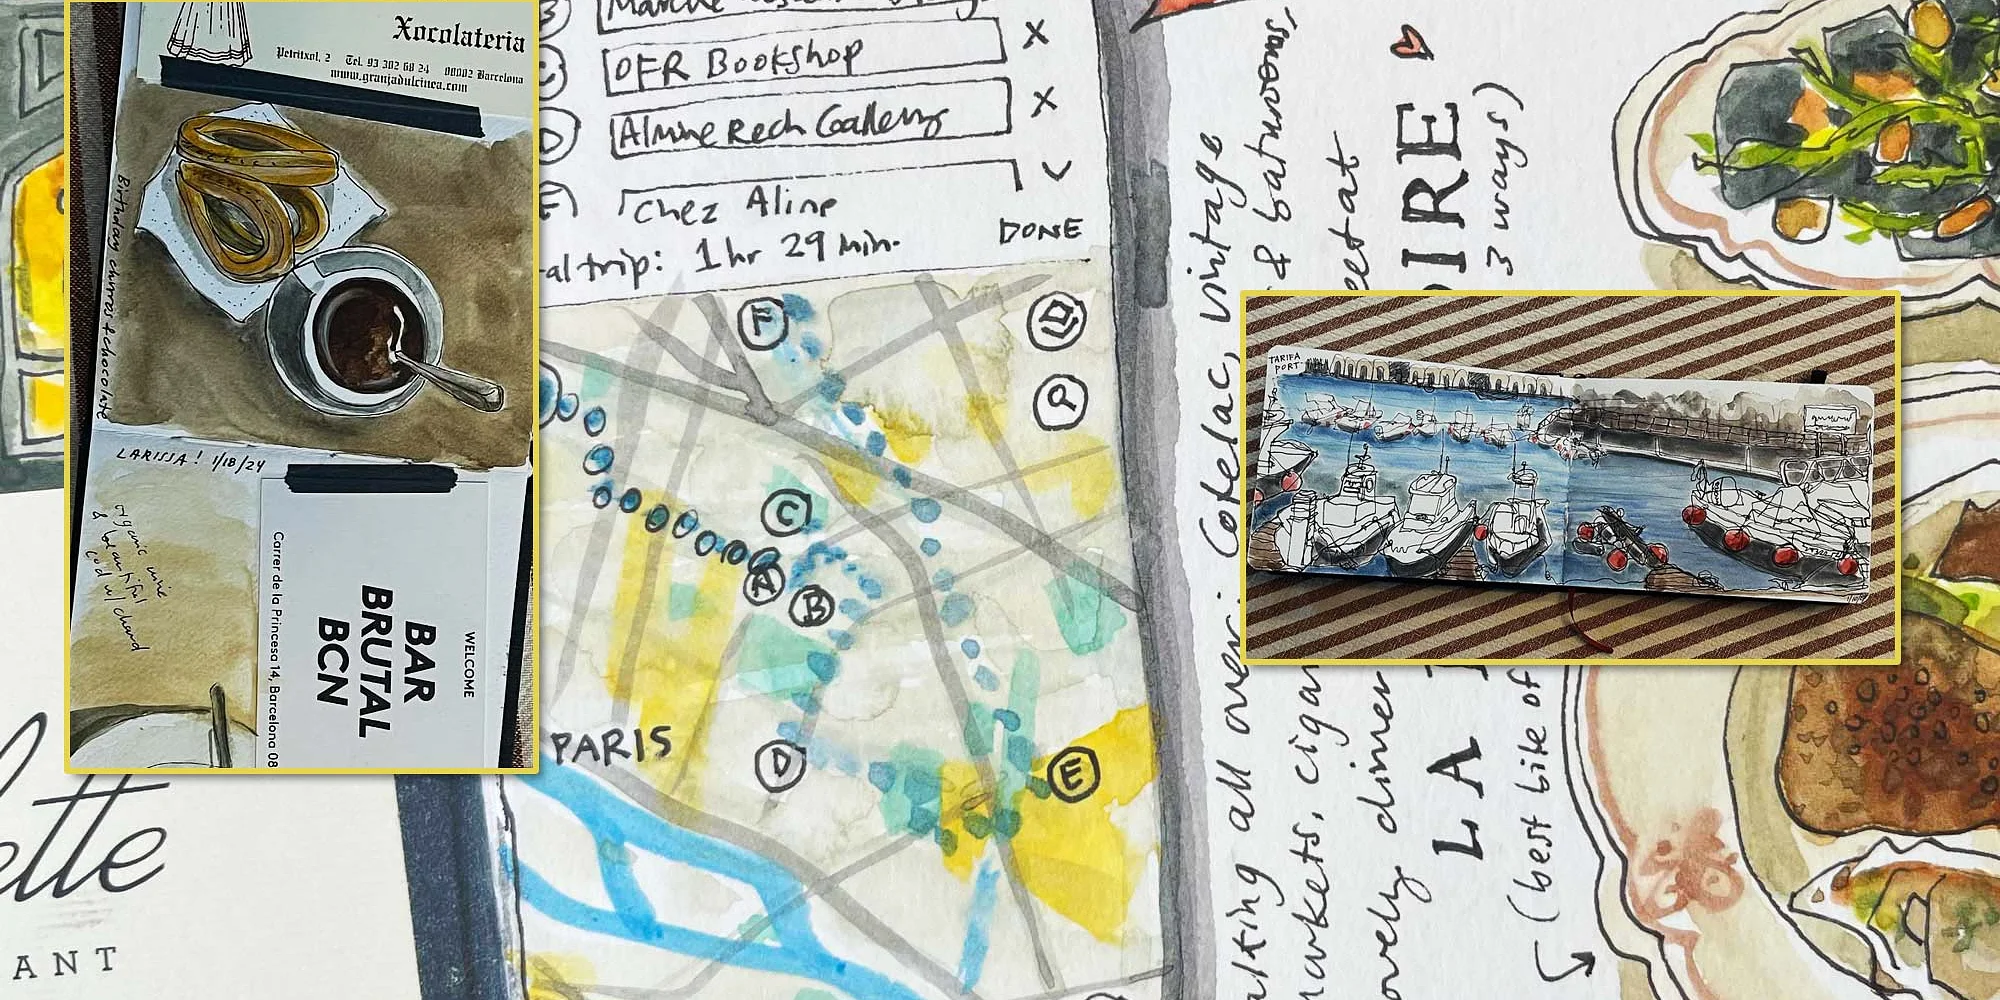 Xocolateria
Petritxol, 2 Tel. 93 302 68 24 08002 Barcelona
www.granjadulcinea.com
Birthday churros & chocolate
LARISSA! 1/18/24
organic wine
& beautiful
cod w/ chard
WELCOME
BAR
BRUTAL
BCN
Carrer de la Princesa 14, Barcelona 08
ette
ANT
OFR Bookshop X
D Almine Rech Gallery X
E Chez Aline
al trip: 1 hr 29 min.
DONE
F
C
A
B
D
E
PARIS
alking all over: Cotelac, vintage
markets, cigar & bathrooms,
lovely dinner eet at
LA
OIRE
(best bite of 3 ways)
TARIFA
PORT